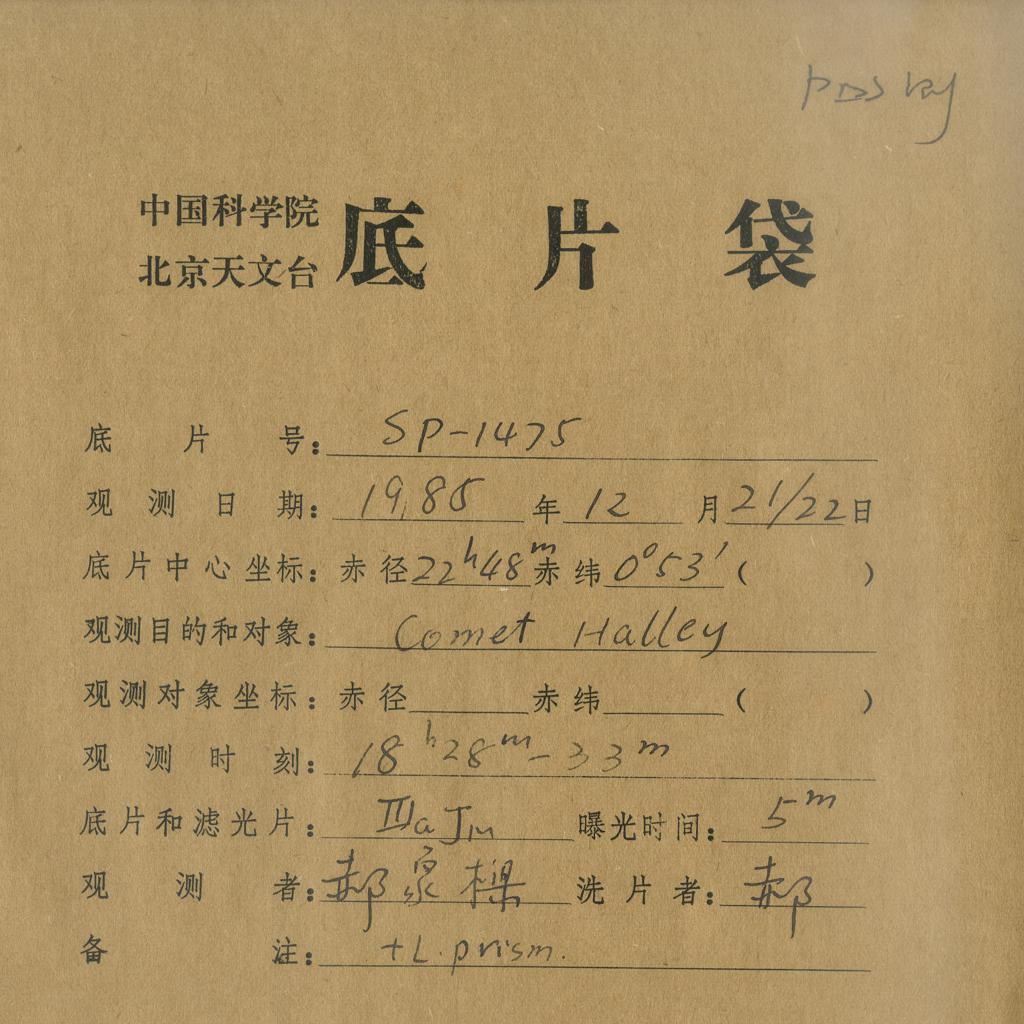 中国科学院
北京天文台
底片袋
底片号：SP-1475
观测日期：1985年12月21/22日
底片中心坐标：赤径22ʰ48ᵐ赤纬0°53′（ ）
观测目的和对象：Comet Halley
观测对象坐标：赤径 赤纬 （ ）
观测时刻：18ʰ28ᵐ-33ᵐ
底片和滤光片：ⅢaJ 曝光时间：5ᵐ
观测者：郝泉樑 洗片者：郝
备注：+L.prism.